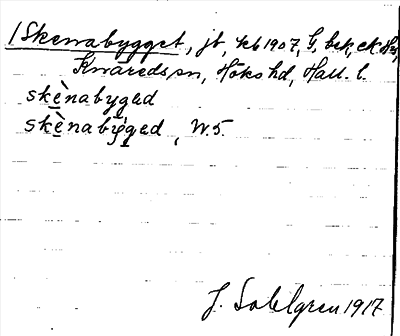 /Skenabygget, jb, kb 1907, G, bek, ek. H
Knäreds sn, Höks hd, Hall. l.
skènabyged
skènabyged, W. 5.
J. Sahlgren 1917